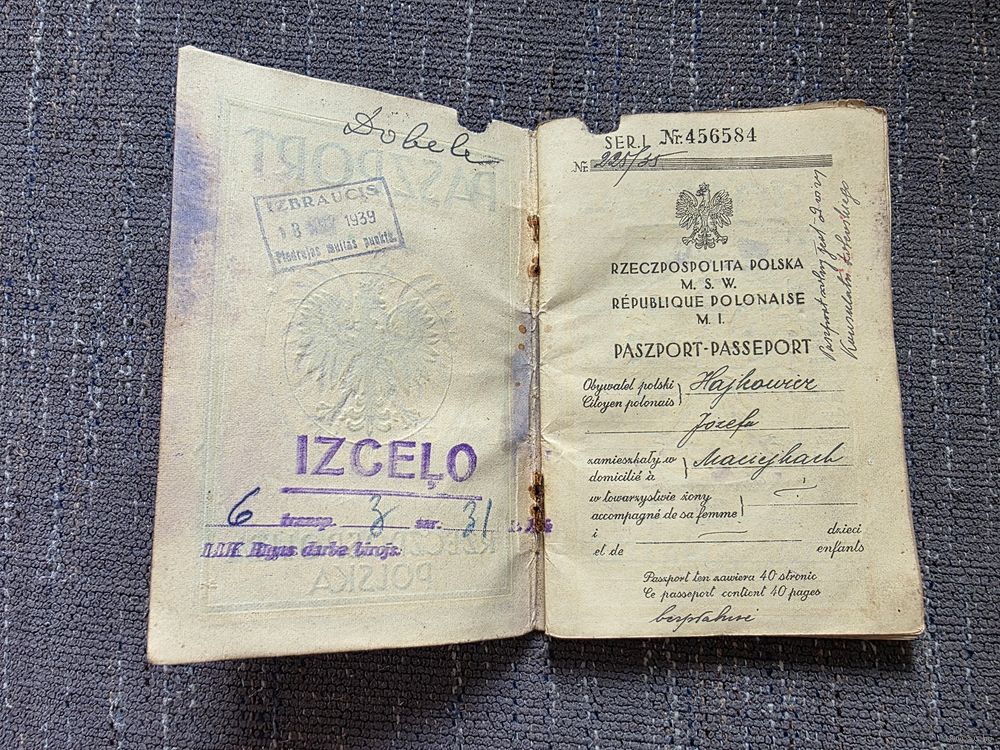 Dobele
IZBRAUCIS
18 1939
Piedrujas muitas punkts
IZCEĻO
6 transp. 3 ser. 31
LLK Rīgas darba birojs
SER.I Nr.456584
Nr. 225/35
RZECZPOSPOLITA POLSKA
M. S. W.
RÉPUBLIQUE POLONAISE
M. I.
PASZPORT-PASSEPORT
Obywatel polski
Citoyen polonais
Hajkowicz
Józefa
zamieszkały w
domicilié à
w towarzystwie żony
accompagné de sa femme
i dzieci
et de enfants
Paszport ten zawiera 40 stronic
Ce passeport contient 40 pages
bezpłatnie
Paszport wolny jest od wizy
Konsulatu Łotewskiego